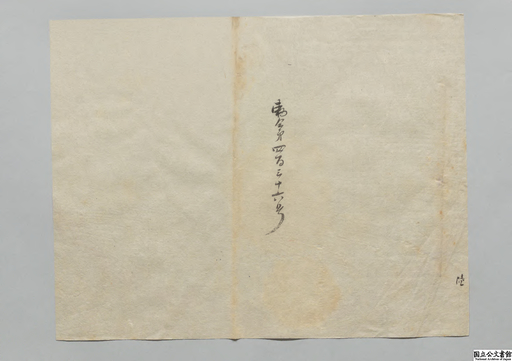 勅令第四百三十六号
国立公文書館
National Archives of Japan